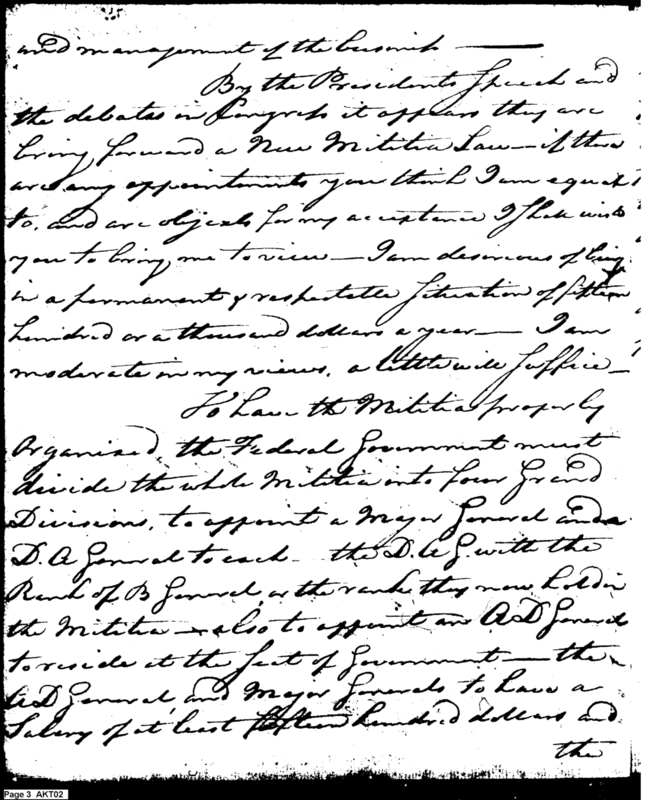 and management of the business
By the Presidents Speech and
the debates in Congress it appears they are
bring forward a New Militia Law — if there
are any appointments you think I am equal
to, and are objects for my acceptance I shall wish
you to bring me to view — I am desireous of being
in a permanant & respectable Situation of fifteen
hundred or a thousand dollars a year — I am
moderate in my views, a little will suffice —
To have the Militia properly
Organised, the Federal Government must
divide the whole Militia into four Grand
Divisions, to appoint a Major General and a
D. A General to each — the D. A G. with the
Rank of B General, or the rank they now hold in
the Militia — also to appoint an A D General
to reside at the Seat of Government — the
A D General, and Major Generals to have a
Salery of at least fifteen hundred dollars and
the
Page 3 AKT02